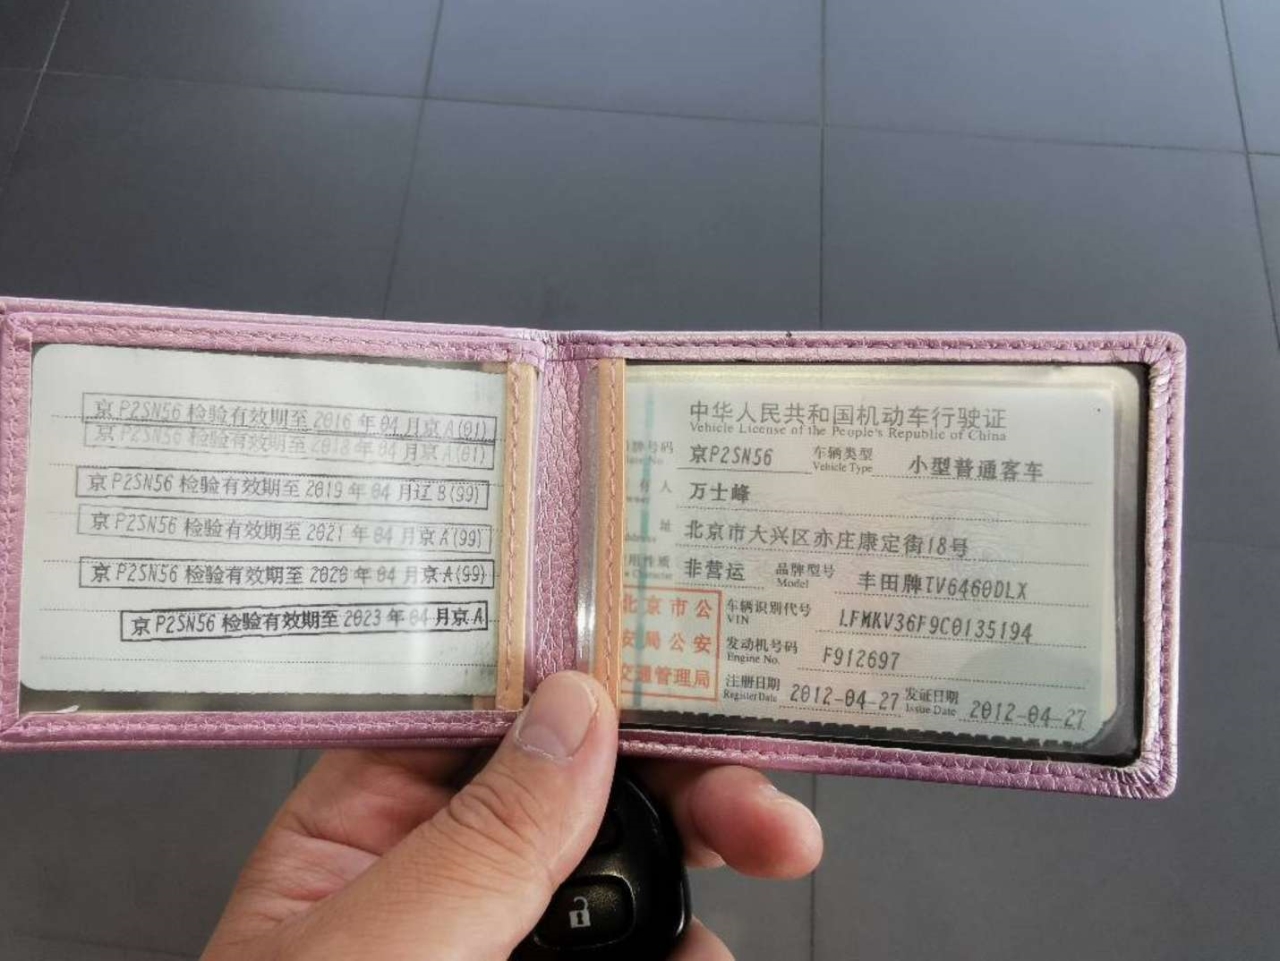 京P2SN56 检验有效期至 2016 年 04 月京A(01)
京P2SN56 检验有效期至 2018 年 04 月京A(01)
京P2SN56 检验有效期至 2019 年 04 月辽B(99)
京P2SN56 检验有效期至 2021 年 04 月京A(99)
京P2SN56 检验有效期至 2020 年 04 月京A(99)
京P2SN56 检验有效期至 2023 年 04 月京A
中华人民共和国机动车行驶证
Vehicle License of the People's Republic of China
牌号码 京P2SN56 车辆类型 小型普通客车
Vehicle Type
人 万士峰
址 北京市大兴区亦庄康定街18号
用性质 非营运 品牌型号 丰田牌TV6460DLX
Character Model
北京市公
安局公安
交通管理局
车辆识别代号 LFMKV36F9C0135194
VIN
发动机号码 F912697
Engine No.
注册日期 2012-04-27 发证日期 2012-04-27
Register Date Issue Date